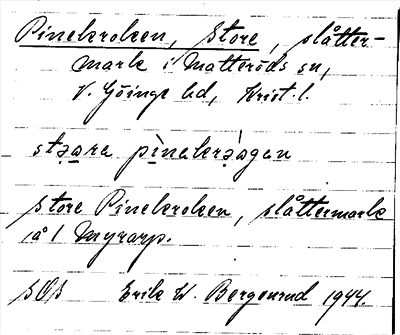 Pinekroken, Store, slåtter-
mark i Matteröds sn,
V. Göinge hd, Krist. l.
stəara pìnakrə́agan
Store Pinekroken, slåttermark
å 1 Myrarp.
SOS Erik W. Bergenrud 1944.